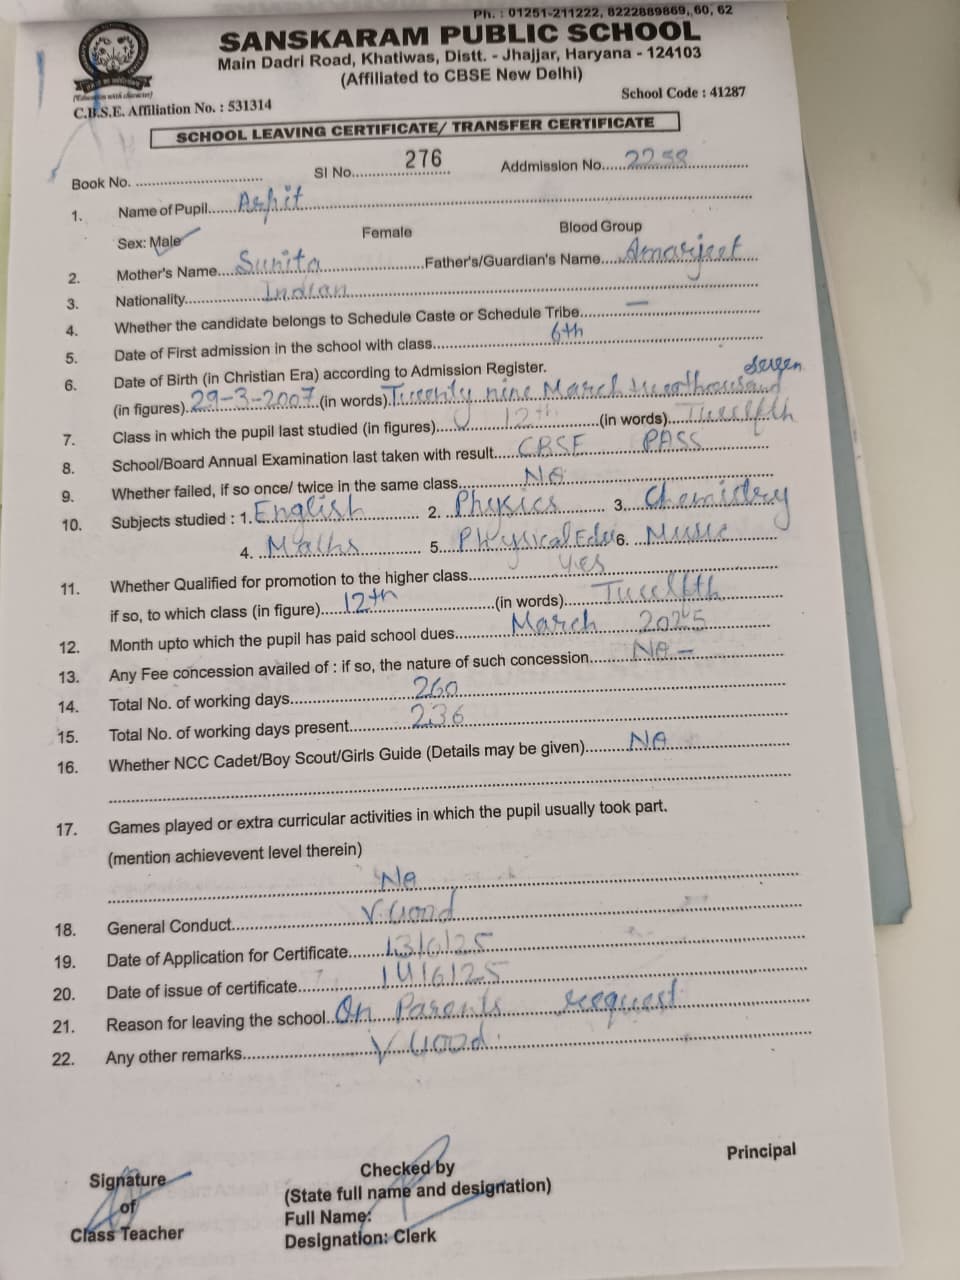 Ph. : 01251-211222, 8222889869, 60, 62
SANSKARAM PUBLIC SCHOOL
Main Dadri Road, Khatiwas, Distt. - Jhajjar, Haryana - 124103
(Affiliated to CBSE New Delhi)
(Education with character)
C.B.S.E. Affiliation No. : 531314 School Code : 41287
SCHOOL LEAVING CERTIFICATE/ TRANSFER CERTIFICATE
Book No. Sl No. 276 Addmission No. 2258
1. Name of Pupil Arpit
Sex: Male Female Blood Group
2. Mother's Name Sunita Father's/Guardian's Name Amarjeet
3. Nationality Indian
4. Whether the candidate belongs to Schedule Caste or Schedule Tribe —
5. Date of First admission in the school with class 6th
6. Date of Birth (in Christian Era) according to Admission Register.
(in figures) 29-3-2007 (in words) Twenty nine March twothousand seven
7. Class in which the pupil last studied (in figures) 12th (in words) Twelfth
8. School/Board Annual Examination last taken with result CBSE PASS
9. Whether failed, if so once/ twice in the same class No
10. Subjects studied : 1. English 2. Physics 3. Chemistry
4. Maths 5. Physical Edu 6. Music
11. Whether Qualified for promotion to the higher class Yes
if so, to which class (in figure) 12th (in words) Twelfth
12. Month upto which the pupil has paid school dues March 2025
13. Any Fee concession availed of : if so, the nature of such concession NA -
14. Total No. of working days 260
15. Total No. of working days present 236
16. Whether NCC Cadet/Boy Scout/Girls Guide (Details may be given) NA
17. Games played or extra curricular activities in which the pupil usually took part.
(mention achievevent level therein)
No
18. General Conduct V Good
19. Date of Application for Certificate 13/6/25
20. Date of issue of certificate 14/6/25
21. Reason for leaving the school On Parents request
22. Any other remarks V Good
Principal
Signature of Class Teacher
Checked by
(State full name and designation)
Full Name:
Designation: Clerk